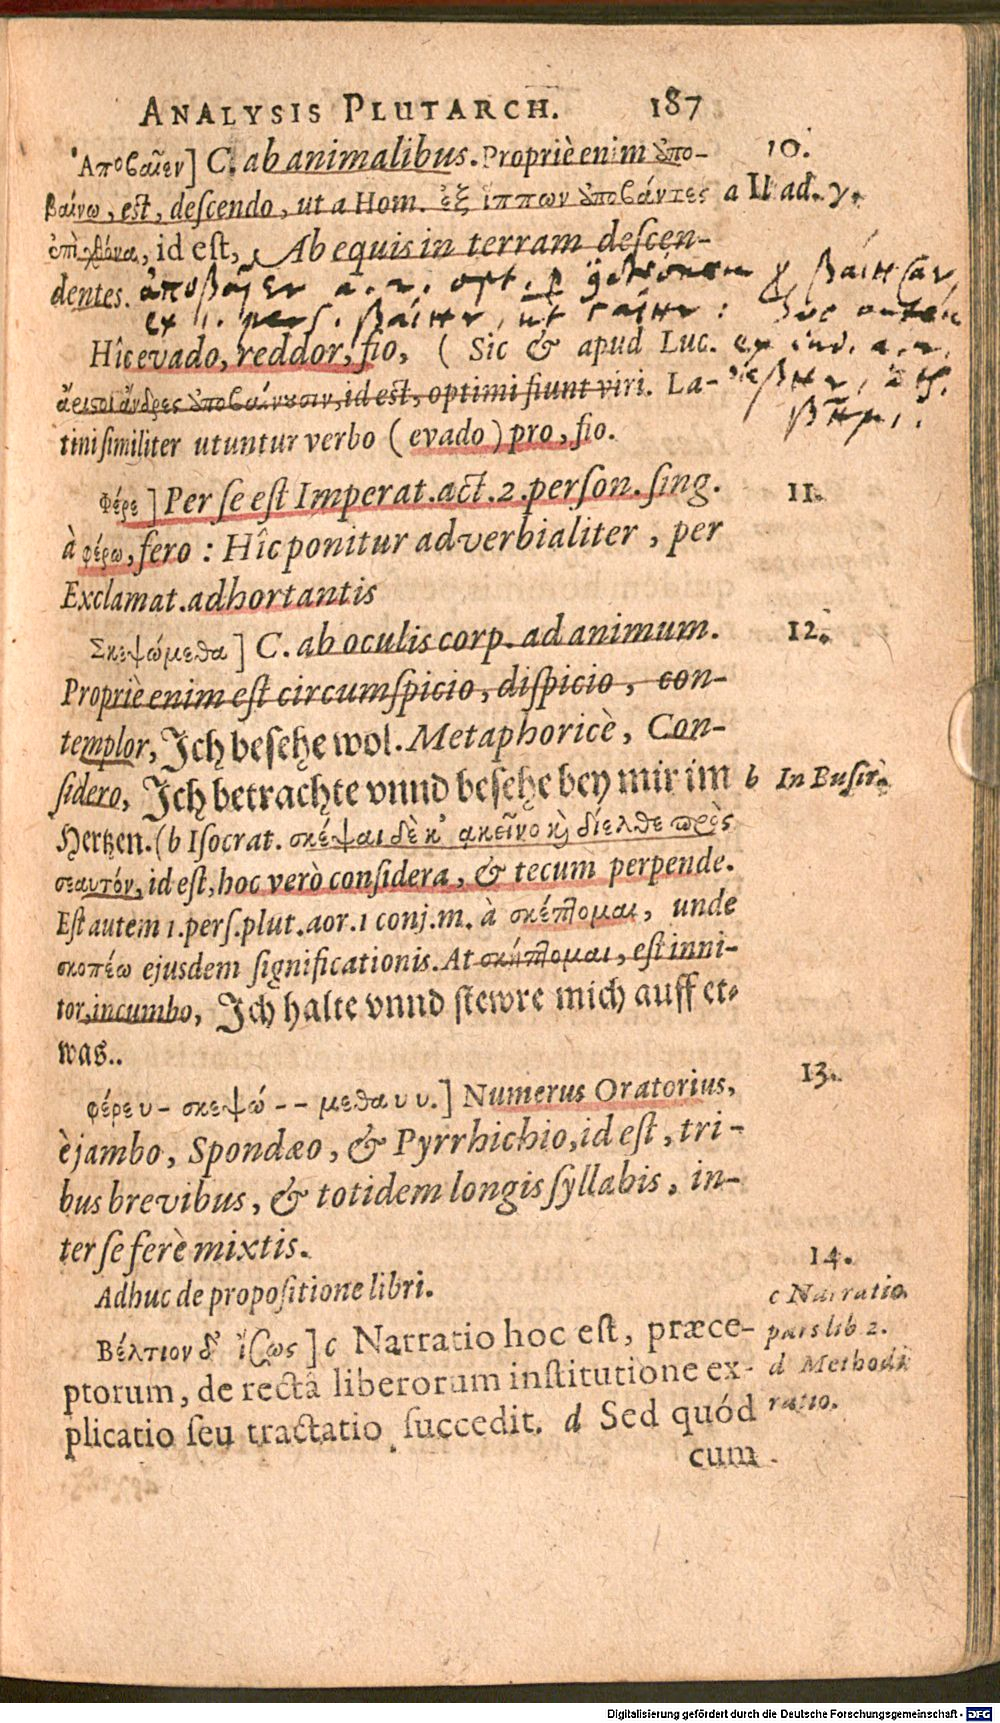 ANALYSIS PLUTARCH. 187
Ἀποβαῖεν] C. ab animalibus. Propriè enim ἀπο- 10.
βαίνω, est, descendo, ut a Hom. ἐξ ἵππων ἀποβάντες a Il ad. γ.
ἐπὶ χθόνα, id est, Ab equis in terram descen-
dentes. ἀποβάῃεν a. 2. opt.
ex 1. pers. βάιην, ut
Hîc evado, reddor, fio, ( Sic & apud Luc. ex ind. a. 2.
ἄριστοι ἄνδρες ἀποβαίνουσιν, id est, optimi fiunt viri. La-
tini similiter utuntur verbo ( evado ) pro, fio. βῆμι,
Φέρε ] Per se est Imperat. act. 2. person. sing. 11.
à φέρω, fero : Hîc ponitur adverbialiter, per
Exclamat. adhortantis
Σκεψώμεθα ] C. ab oculis corp. ad animum. 12.
Propriè enim est circumspicio, dispicio, con-
templor, Ich besehe wol. Metaphoricè, Con-
sidero, Ich betrachte vnnd besehe bey mir im b In Busir.
Hertzen. (b Isocrat. σκέψαι δὲ κ' ἀκεῖνο κỳ δίελθε πρὸς
σεαυτόν, id est, hoc verò considera, & tecum perpende.
Est autem 1. pers. plut. aor. 1 conj. m. à σκέπτομαι, unde
σκοπέω ejusdem significationis. At σκήπτομαι, est inni-
tor, incumbo, Ich halte vnnd stewre mich auff et-
was..
φέρε υ - σκεψώ - - μεθα υ υ.] Numerus Oratorius, 13.
è jambo, Spondæo, & Pyrrhichio, id est, tri-
bus brevibus, & totidem longis syllabis, in-
ter se ferè mixtis.
Adhuc de propositione libri. 14.
Βέλτιον δ' ἴσως ] c Narratio hoc est, præce- c Narratio pars lib 2.
ptorum, de rectâ liberorum institutione ex- d Methodi
plicatio seu tractatio succedit. d Sed quód ratio.
cum
Digitalisierung gefördert durch die Deutsche Forschungsgemeinschaft - DFG